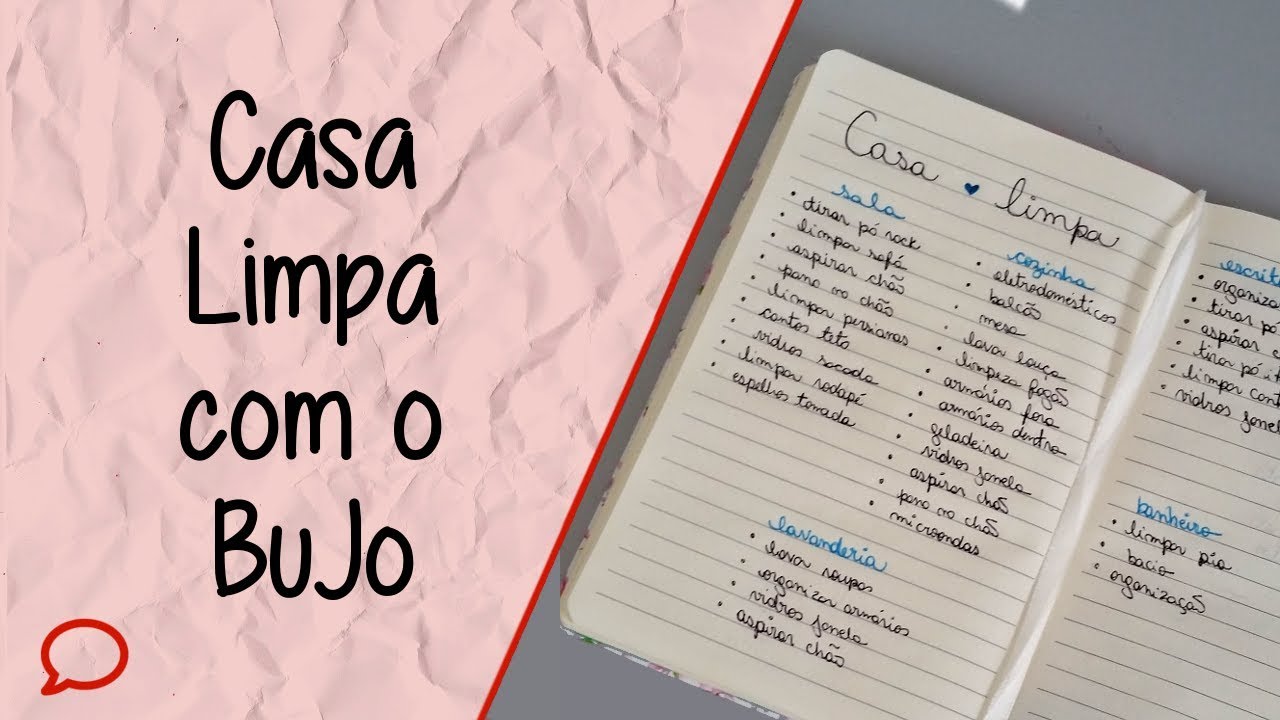 Casa
Limpa
com o
BuJo
Casa limpa
sala
tirar pó rack
limpar sofá
aspirar chão
pano no chão
limpar persianas
cantos teto
vidros sacada
limpar rodapé
espelhos tomada
cozinha
eletrodomésticos
balcão
mesa
lavar louça
limpeza fogão
armários fora
armários dentro
geladeira
vidros janela
aspirar chão
pano no chão
microondas
lavanderia
lavar roupas
organizar armários
vidros janela
aspirar chão
escrit
organiza
tirar pó
aspirar
tirar pó
limpar cant
vidros janela
banheiro
limpar pia
bacio
organização